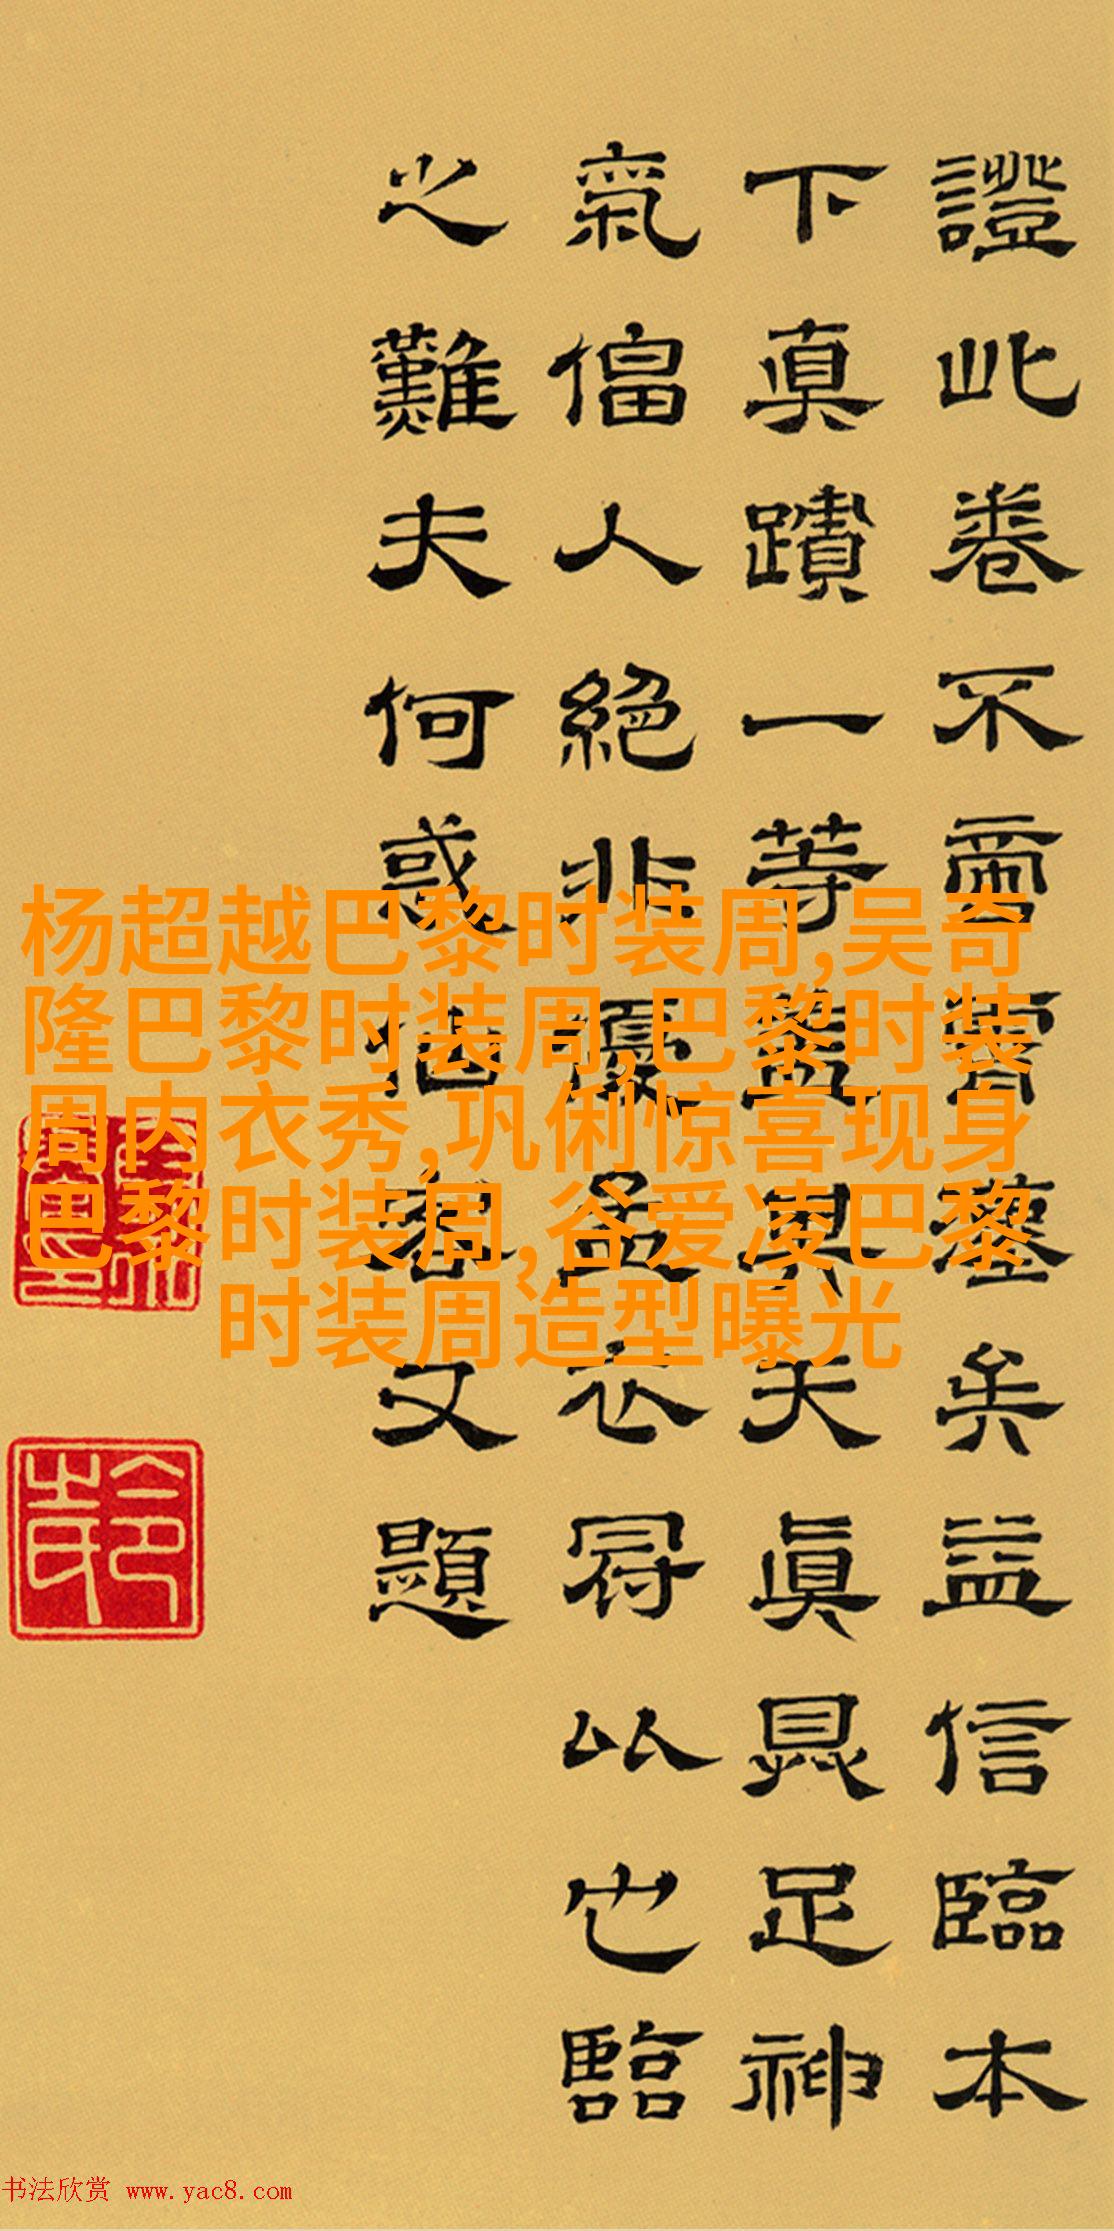 證此卷不啻霄壤矣益信臨本
下真蹟一等蓋其天真具足神
氣偪人絕非優孟衣冠以也臨
之難夫何惑又題
杨超越巴黎时装周,吴奇
隆巴黎时装周,巴黎时装
周内衣秀,巩俐惊喜现身
巴黎时装周,谷爱凌巴黎
时装周造型曝光
书法欣赏 www.yac8.com